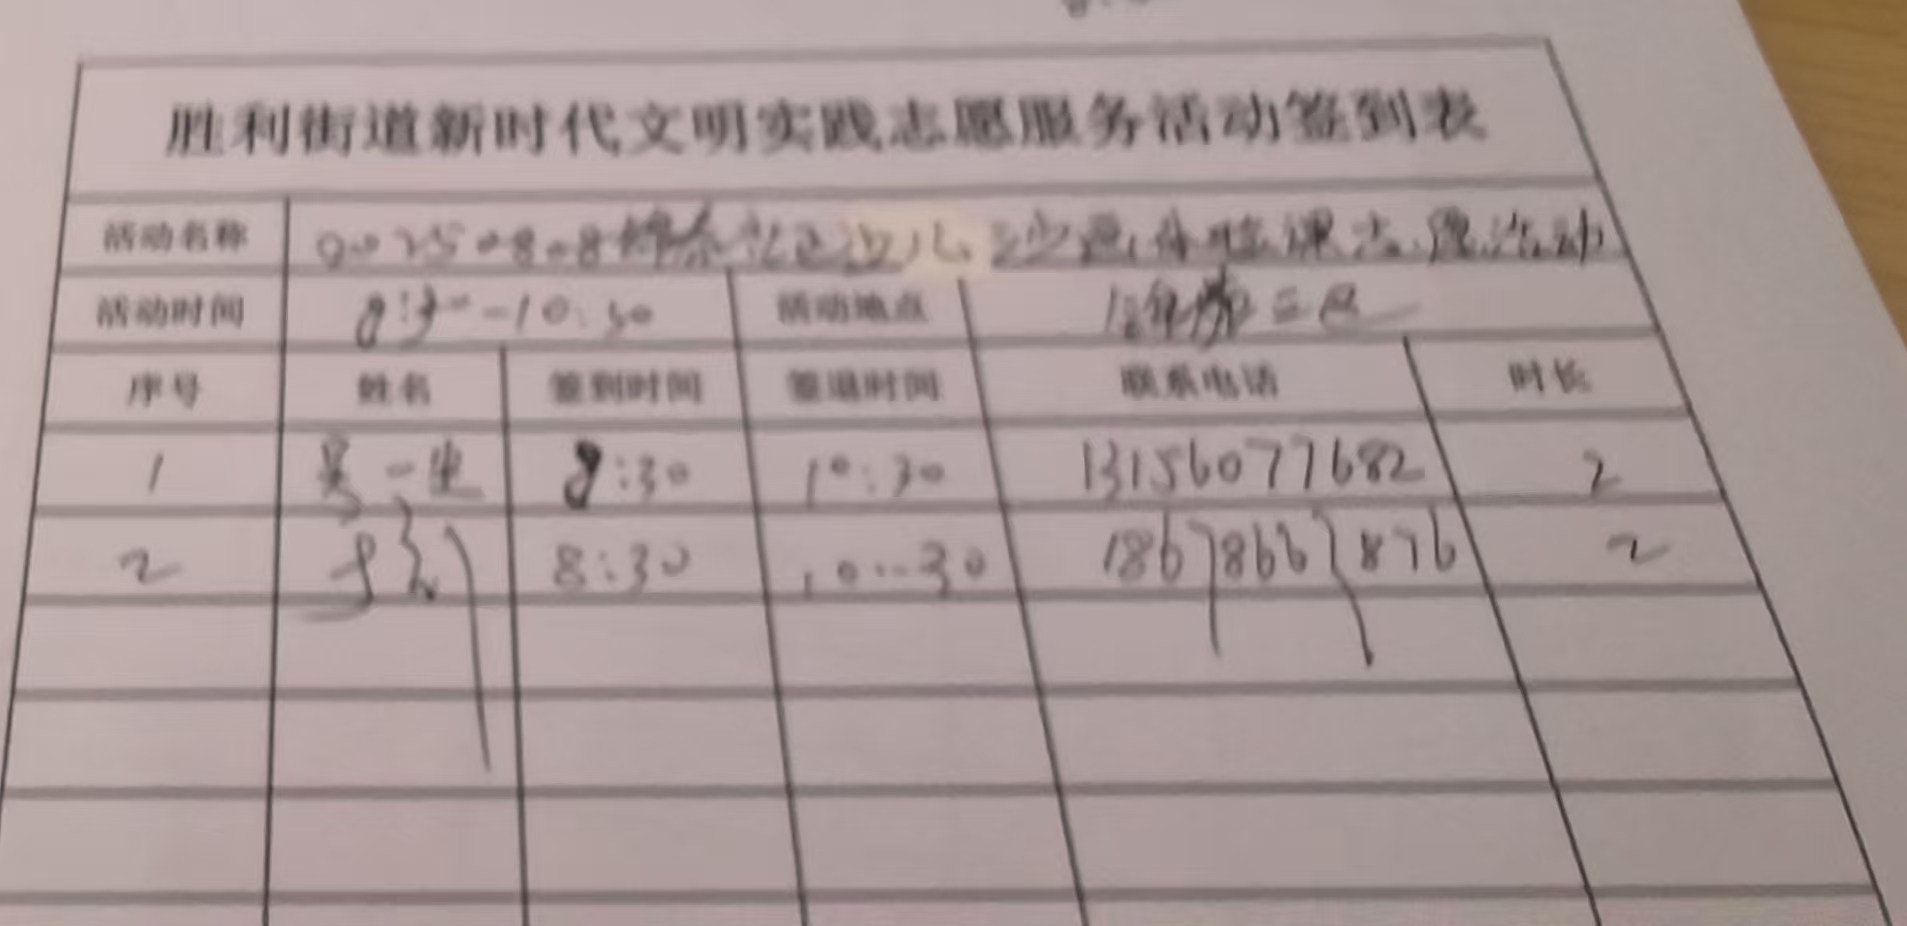 胜利街道新时代文明实践志愿服务活动签到表
活动名称 20250808 社区 少儿 沙画体验课志愿活动
活动时间 8:30-10:30 活动地点 二区
序号 姓名 签到时间 签退时间 联系电话 时长
1 吴一 8:30 10:30 13156077682 2
2 8:30 10:30 18678667876 2